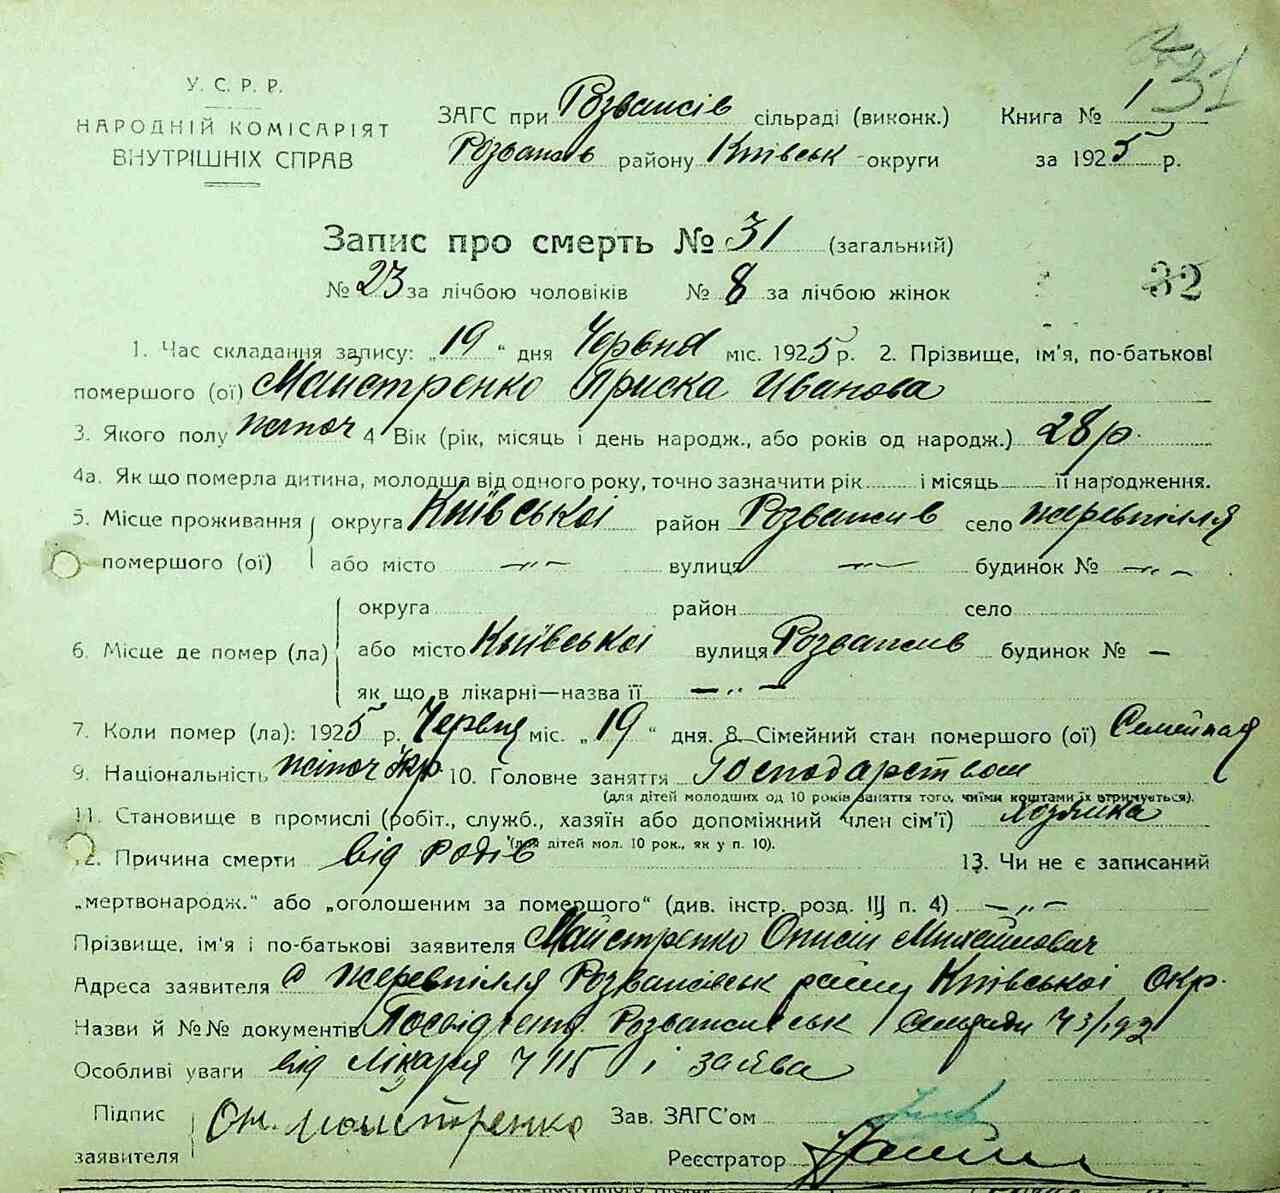 31
У. С. Р. Р.
НАРОДНІЙ КОМІСАРІЯТ
ВНУТРІШНІХ СПРАВ
ЗАГС при Розважів сільраді (виконк.) Книга № 1
Розважів району Київськ округи за 1925 р.
Запис про смерть № 31 (загальний)
№ 23 за лічбою чоловіків № 8 за лічбою жінок
32
1. Час складання запису: „19“ дня Червня міс. 1925 р. 2. Прізвище, ім'я, по-батькові
помершого (ої) Майстренко Приска Иванова
3. Якого полу жіноч 4 Вік (рік, місяць і день народж., або років од народж.) 28 р.
4а. Як що померла дитина, молодша від одного року, точно зазначити рік і місяць її народження.
5. Місце проживання округа Київської район Розважив село жеревпілля
помершого (ої) або місто —„— вулиця —„— будинок № —„—
округа район село
6. Місце де помер (ла) або місто Київської вулиця Розважив будинок № —
як що в лікарні—назва її —„—
7. Коли помер (ла): 1925 р. Червня міс. „19“ дня. 8. Сімейний стан помершого (ої) Семейная
9. Національність жіноч Укр 10. Головне заняття Господарством
(для дітей молодших од 10 років заняття того, чиїми коштами їх отримується).
11. Становище в промислі (робіт., служб., хазяїн або допоміжний член сім'ї) хозяйка
(для дітей мол. 10 рок., як у п. 10).
12. Причина смерти від родів 13. Чи не є записаний
„мертвонародж.“ або „оголошеним за помершого“ (див. інстр. розд. III п. 4) —„—
Прізвище, ім'я і по-батькові заявителя Майстренко Онисій Михайлович
Адреса заявителя с жеревпілля Розважівськ району Київської окр.
Назви й №№ документів Розважівськ Сільради
Особливі уваги від лікаря Ч 115 і заява
Підпис
заявителя Он. майстренко Зав. ЗАГС'ом
Реєстратор